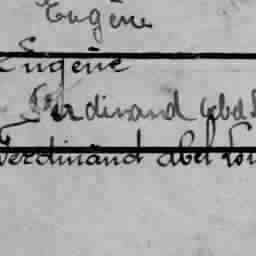 Eugène
Eugène
Ferdinand abel
Ferdinand abel